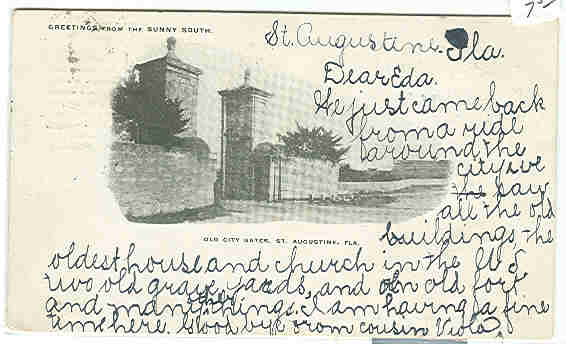 GREETINGS FROM THE SUNNY SOUTH.
St. Augustine. Fla.
Dear Eda.
We just came back
from a ride
around the
city we
the saw
all the old
buildings the
OLD CITY GATES, ST. AUGUSTINE, FLA.
oldest house and church in the U S
two old grave yards, and an old fort
and many other things. I am having a fine
time here. Good bye from cousin Viola